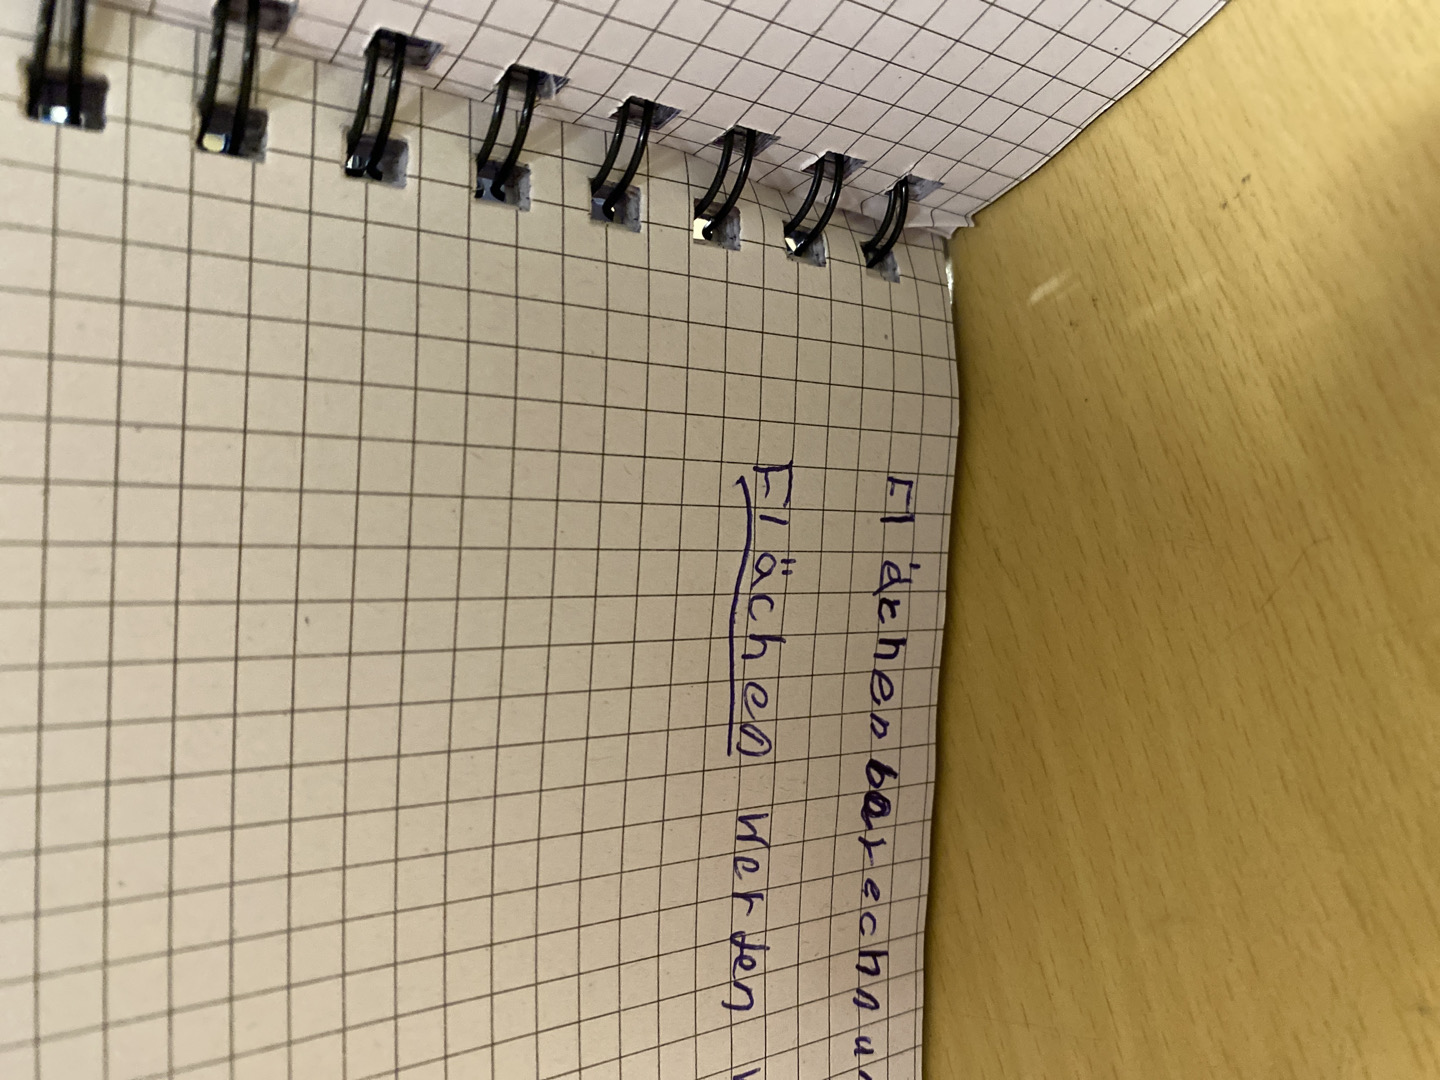 Flächenberechnun
Flächen werden